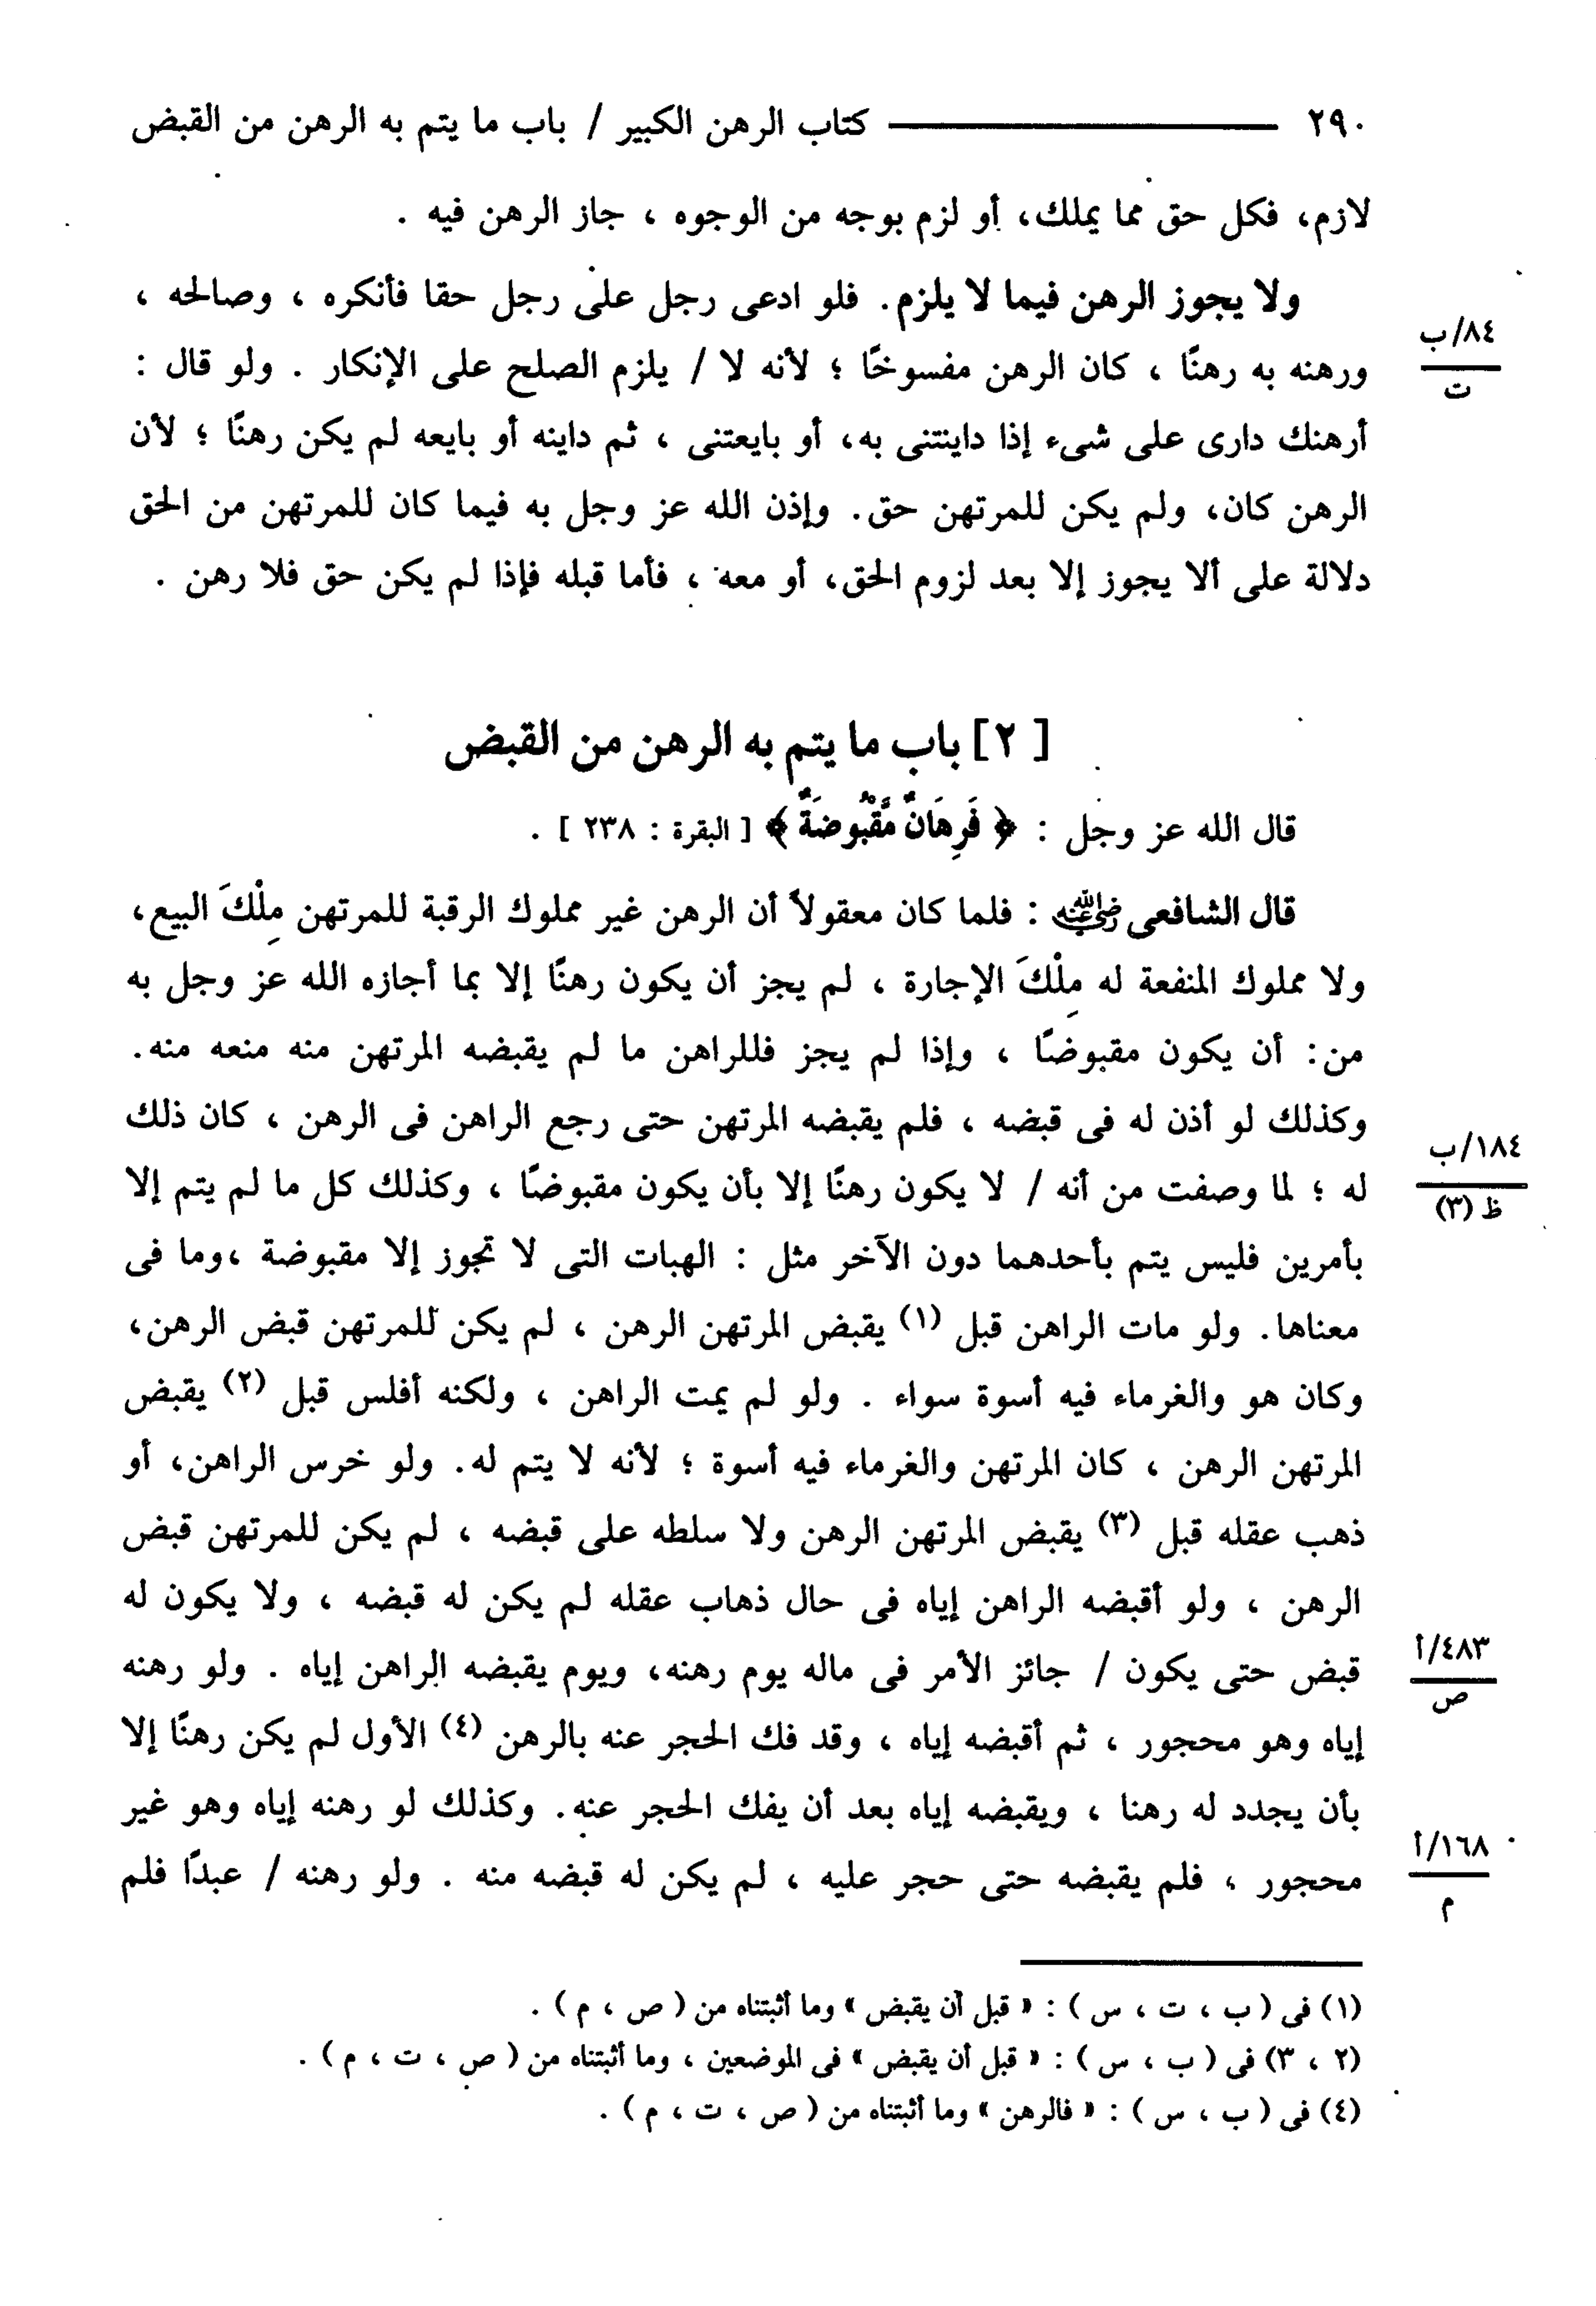 ٢٩٠ ــــــــــــــــــ كتاب الرهن الكبير / باب ما يتم به الرهن من القبض
لازم، فكل حق مما يملك، أو لزم بوجه من الوجوه ، جاز الرهن فيه .
ولا يجوز الرهن فيما لا يلزم. فلو ادعى رجل على رجل حقا فأنكره ، وصالحه ،
٨٤/ب
ت
ورهنه به رهنًا ، كان الرهن مفسوخًا ؛ لأنه لا / يلزم الصلح على الإنكار . ولو قال :
أرهنك دارى على شىء إذا داينتنى به، أو بايعتنى ، ثم داينه أو بايعه لم يكن رهنًا ؛ لأن
الرهن كان، ولم يكن للمرتهن حق. وإذن الله عز وجل به فيما كان للمرتهن من الحق
دلالة على ألا يجوز إلا بعد لزوم الحق، أو معه ، فأما قبله فإذا لم يكن حق فلا رهن .
[ ٢ ] باب ما يتم به الرهن من القبض
قال الله عز وجل : ﴿ فَرِهَانٌ مَّقْبُوضَةٌ ﴾ [ البقرة : ٢٣٨ ] .
قال الشافعى رضي الله عنه : فلما كان معقولاً أن الرهن غير مملوك الرقبة للمرتهن مِلْكَ البيع،
ولا مملوك المنفعة له مِلْكَ الإجارة ، لم يجز أن يكون رهنًا إلا بما أجازه الله عز وجل به
من: أن يكون مقبوضًا ، وإذا لم يجز فللراهن ما لم يقبضه المرتهن منه منعه منه.
وكذلك لو أذن له فى قبضه ، فلم يقبضه المرتهن حتى رجع الراهن فى الرهن ، كان ذلك
١٨٤/ب
ظ (٣)
له ؛ لما وصفت من أنه / لا يكون رهنًا إلا بأن يكون مقبوضًا ، وكذلك كل ما لم يتم إلا
بأمرين فليس يتم بأحدهما دون الآخر مثل : الهبات التى لا تجوز إلا مقبوضة ،وما فى
معناها. ولو مات الراهن قبل (١) يقبض المرتهن الرهن ، لم يكن للمرتهن قبض الرهن،
وكان هو والغرماء فيه أسوة سواء . ولو لم يمت الراهن ، ولكنه أفلس قبل (٢) يقبض
المرتهن الرهن ، كان المرتهن والغرماء فيه أسوة ؛ لأنه لا يتم له. ولو خرس الراهن، أو
ذهب عقله قبل (٣) يقبض المرتهن الرهن ولا سلطه على قبضه ، لم يكن للمرتهن قبض
الرهن ، ولو أقبضه الراهن إياه فى حال ذهاب عقله لم يكن له قبضه ، ولا يكون له
٤٨٣/أ
ص
قبض حتى يكون / جائز الأمر فى ماله يوم رهنه، ويوم يقبضه الراهن إياه . ولو رهنه
إياه وهو محجور ، ثم أقبضه إياه ، وقد فك الحجر عنه بالرهن (٤) الأول لم يكن رهنًا إلا
بأن يجدد له رهنا ، ويقبضه إياه بعد أن يفك الحجر عنه. وكذلك لو رهنه إياه وهو غير
١٦٨/أ
م
محجور ، فلم يقبضه حتى حجر عليه ، لم يكن له قبضه منه . ولو رهنه / عبدًا فلم
(١) فى ( ب ، ت ، س ) : « قبل أن يقبض » وما أثبتناه من ( ص ، م ) .
(٢ ، ٣) فى ( ب ، س ) : « قبل أن يقبض » فى الموضعين ، وما أثبتناه من ( ص ، ت ، م ) .
(٤) فى ( ب ، س ) : « فالرهن » وما أثبتناه من ( ص ، ت ، م ) .